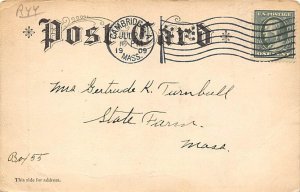 RYY
Post Card
CAMBRIDGE
JUL
19 09
MASS.
Mrs Gertrude K. Turnbull
State Farm
Mass.
Box 55
This side for address.